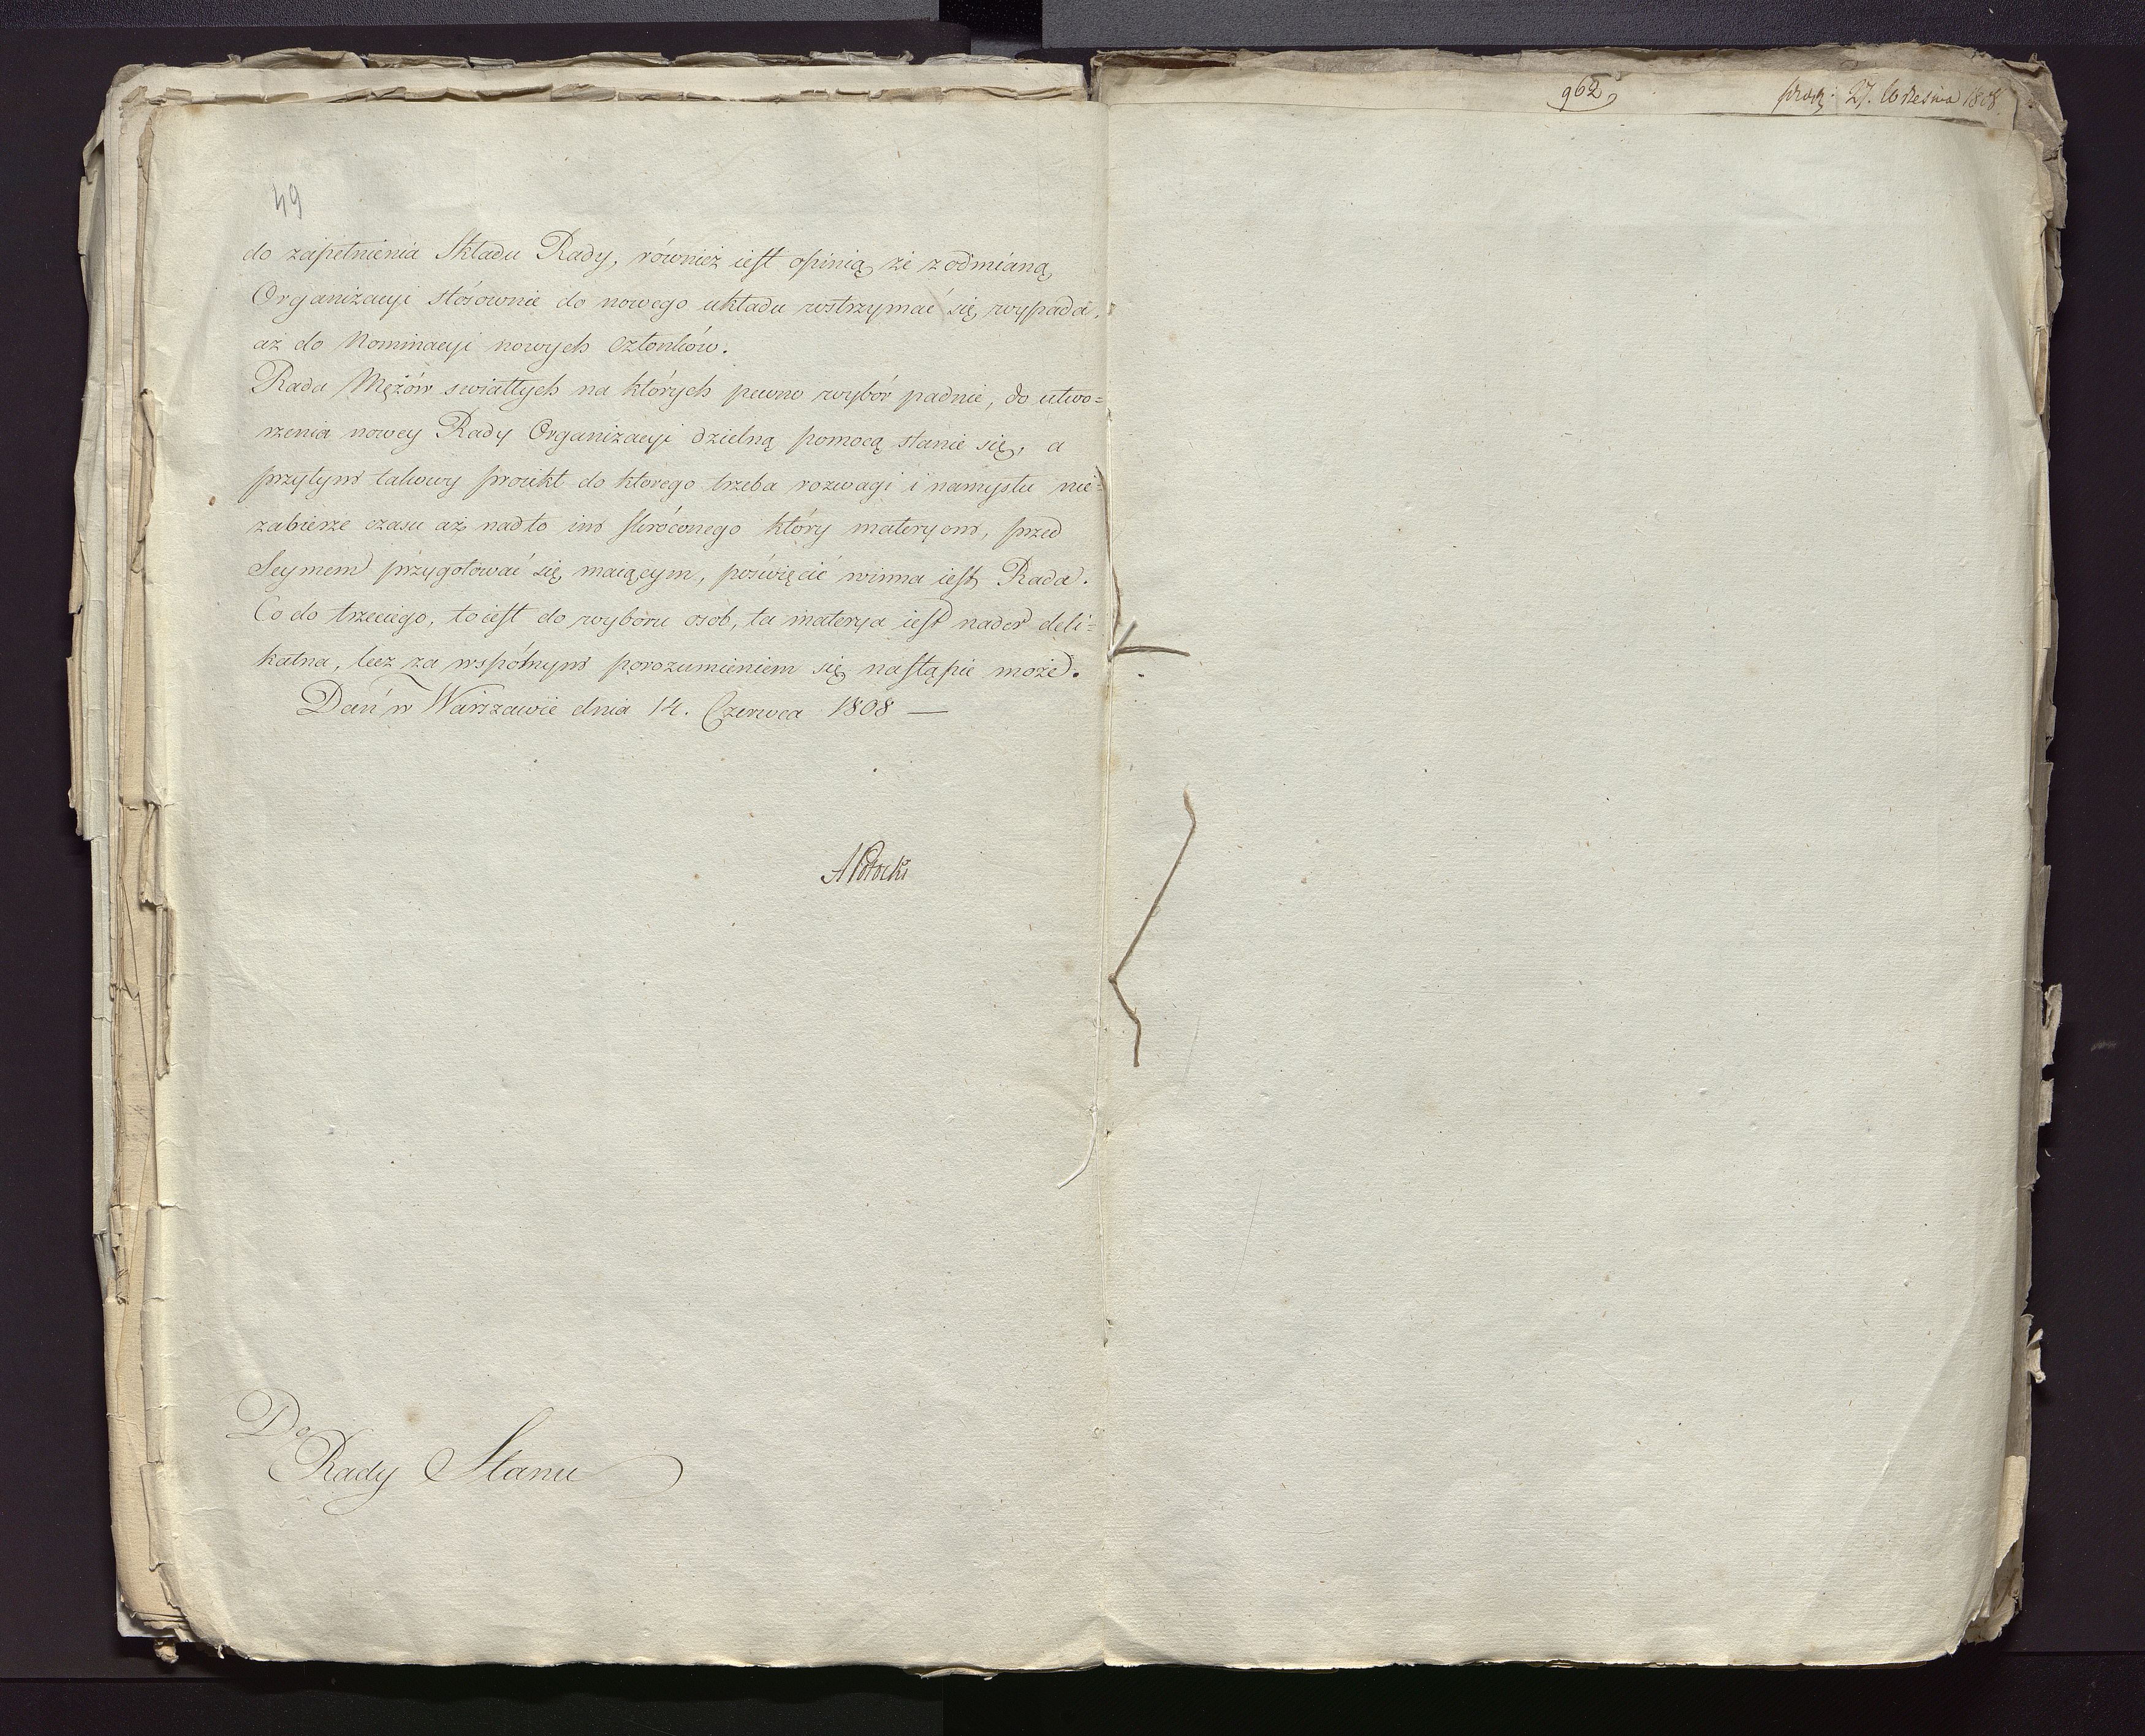 49
do zapełnienia Składu Rady, również iest opinią że z odmianą
Organizacyi stósownie do nowego układu wstrzymać się wypada,
aż do Nominacyi nowych Członków.
Rada Mężów swiatłych na których pewno wybór padnie, do utwo=
rzenia nowey Rady Organizacyi dzielną pomocą stanie się, a
przytym takowy proiekt do ktorego trzeba rozwagi i namysłu nie=
zabierze czasu aż nadto im skróconego który materyom, przed
Seymem przygotować się maiącym, poświęcić winna iest Rada.
Co do trzeciego, to iest do wyboru osob, ta materya iest nader deli=
katna, lecz za wspólnym porozumieniem się nastąpić może.
Dań w Warszawie dnia 14. Czerwca 1808 —
APotocki
Do
Rady Stanu
962
27. Wrzesnia 1808